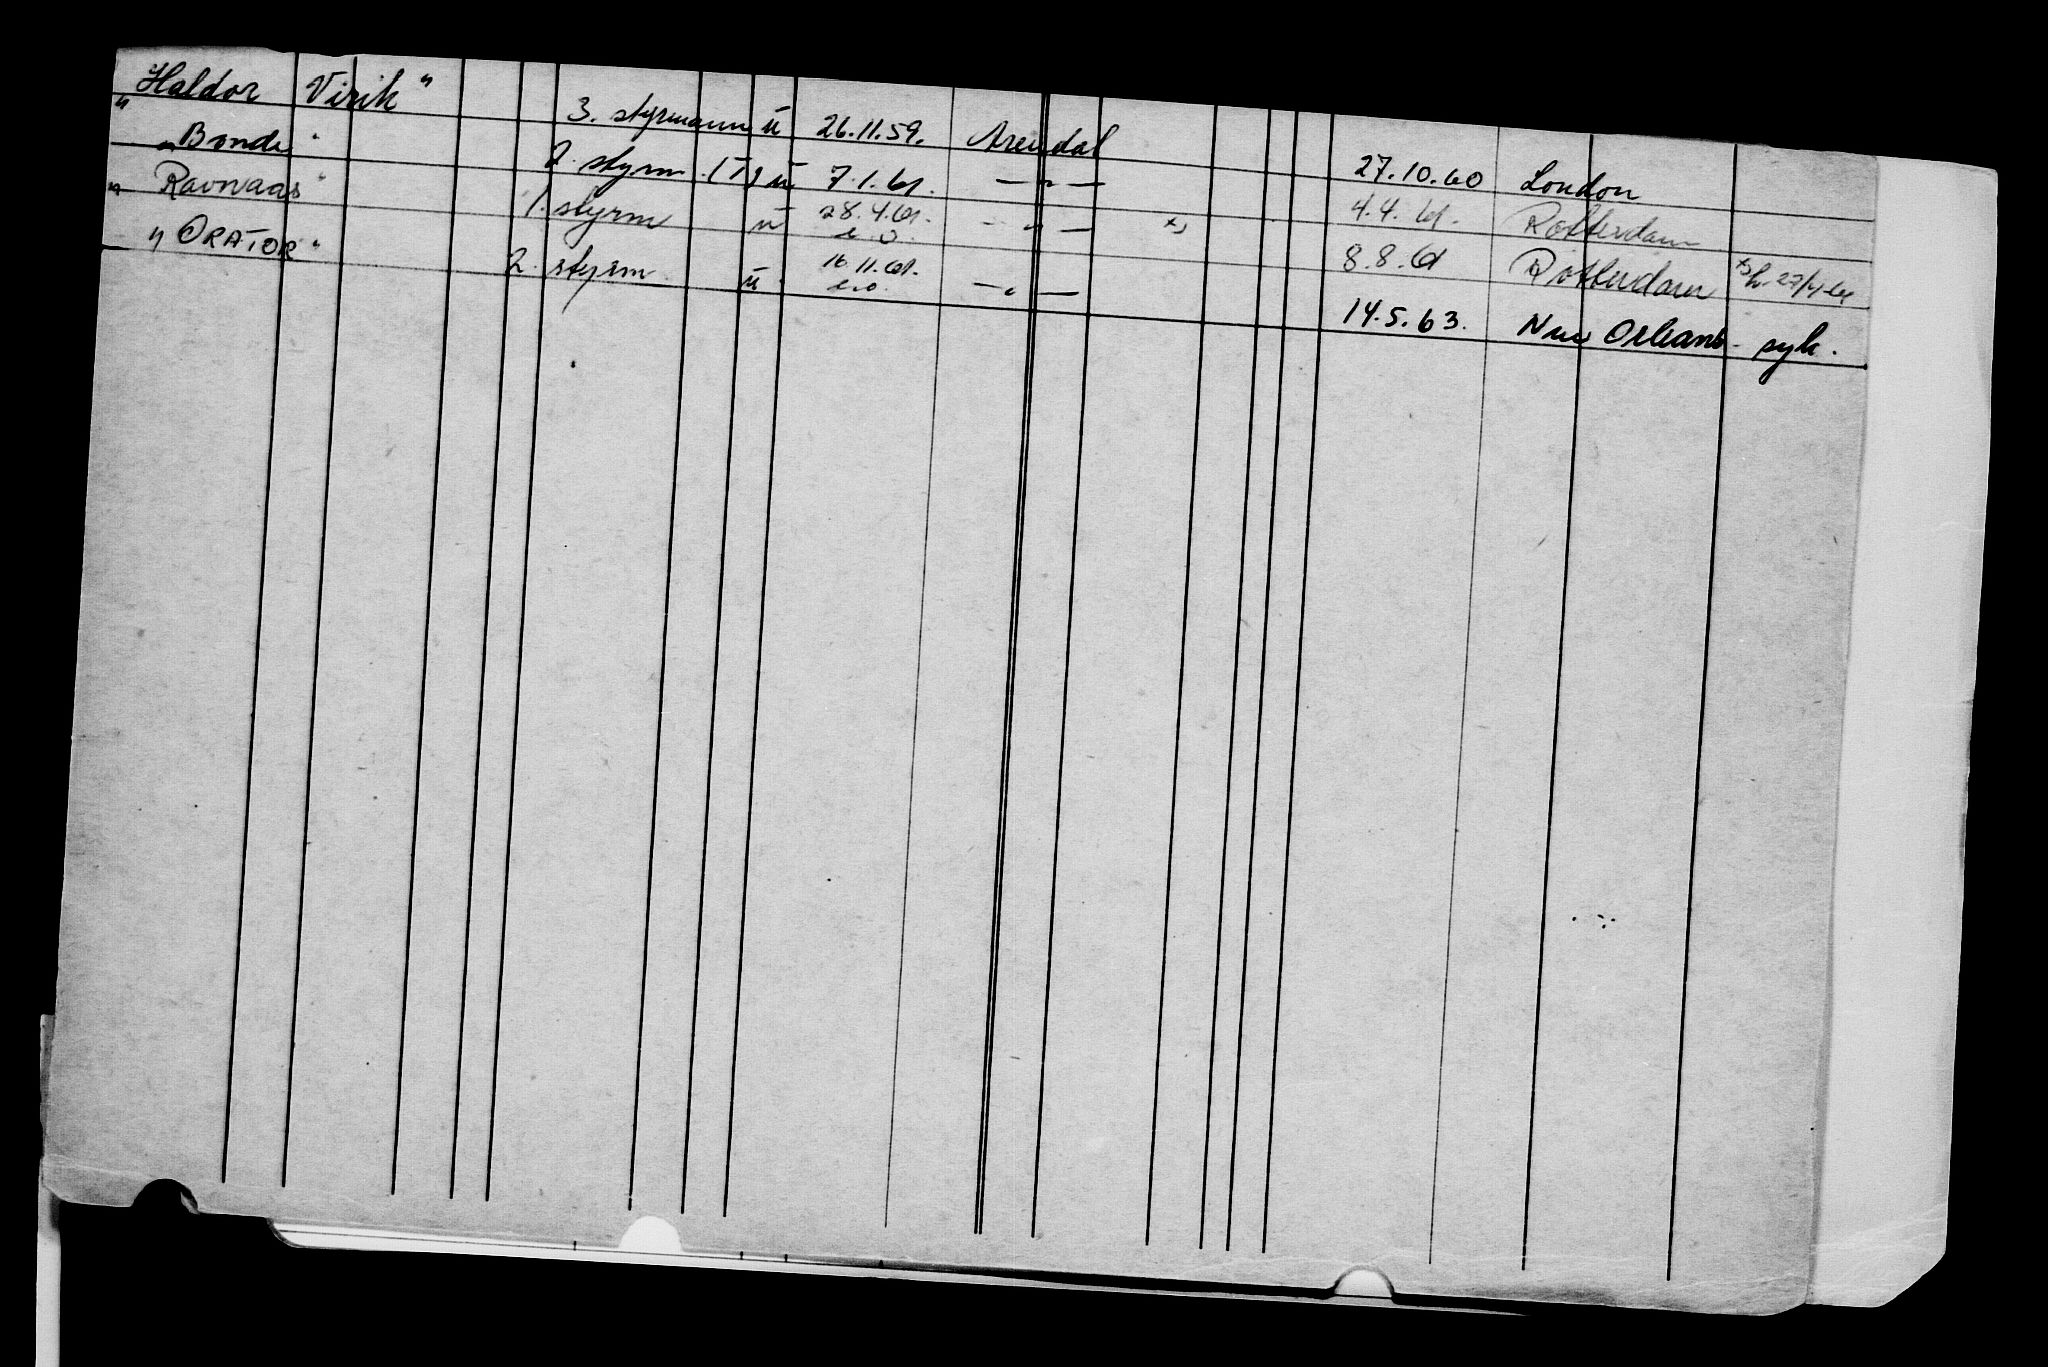 "Haldor Virik" 3. styrmann u 26.11.59. Arendal 27.10.60 London
"Bonde" 2. styrm. u 7.1.61. — " — 4.4.61. Rotterdam
"Ravnaas" 1. styrm u 28.4.61. — " — x) 8.8.61 Rotterdam x) h. 27/4-61
e.o.
"ORATOR" 2. styrm. u 16.11.61. — " — 14.5.63. New Orleans - syk.
e.o.